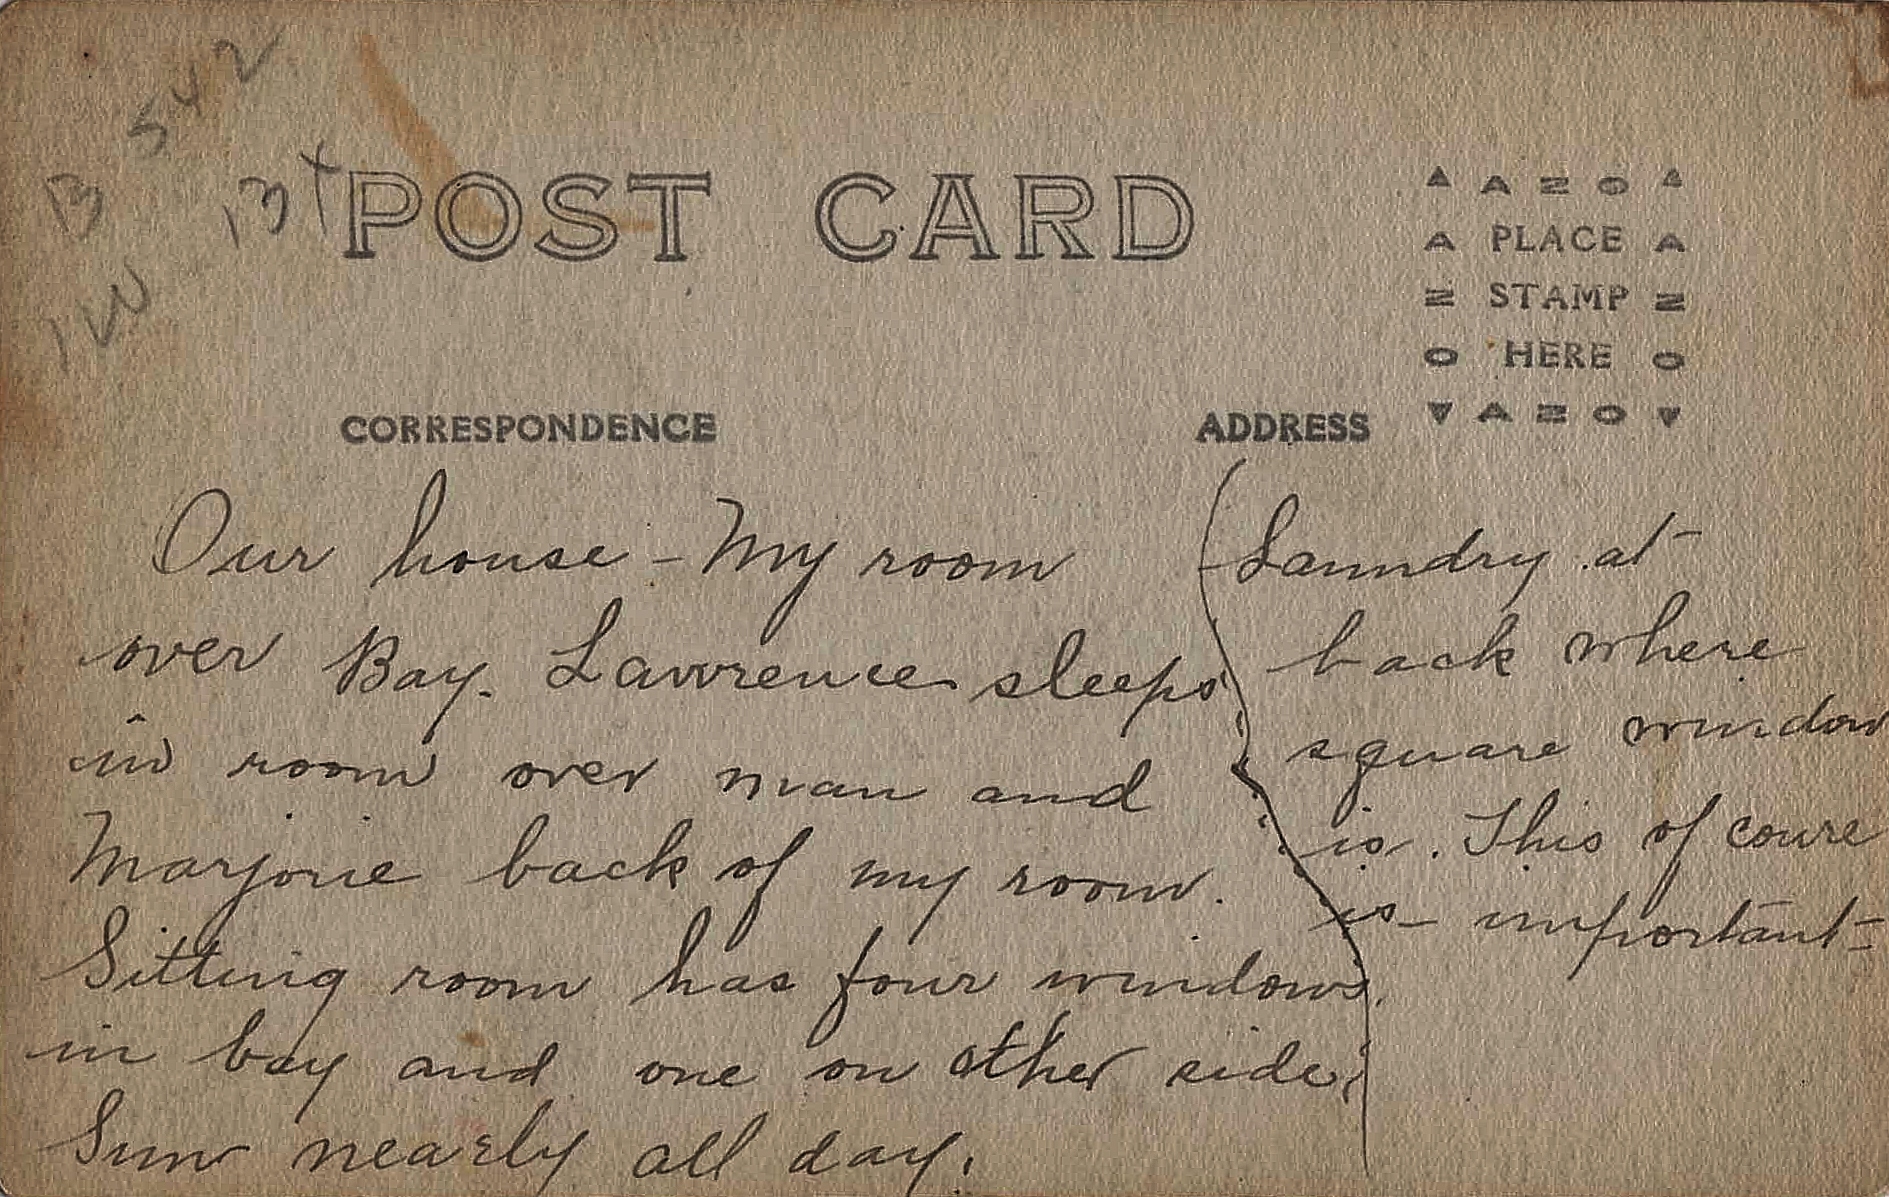 B 542
13 +
1W
POST CARD
▲ AZO ▲
A PLACE A
Z STAMP Z
O HERE O
▼ AZO ▼
CORRESPONDENCE
ADDRESS
Our house - My room
over Bay. Lawrence sleeps
in room over man and
Marjorie back of my room.
Sitting room has four windows
in bay and one on other side.
Sun nearly all day.
Laundry at
back where
square window
is. This of coure
is important-